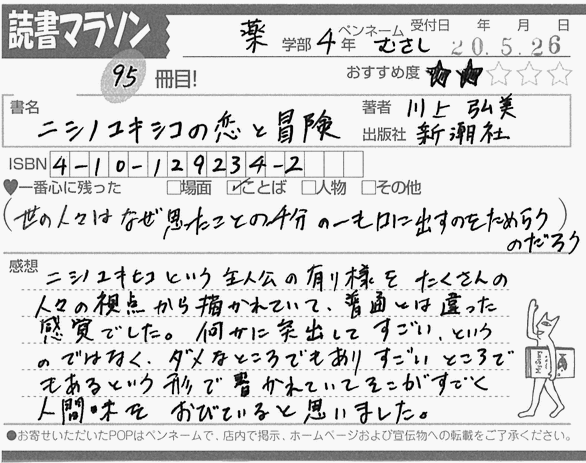 読書マラソン
薬 学部 4 年 ペンネーム むさし 受付日 年 月 日 20.5.26
95 冊目! おすすめ度 ★★☆☆☆
書名 ニシノユキヒコの恋と冒険 著者 川上 弘美
出版社 新潮社
ISBN 4-10-129234-2
♥一番心に残った □場面 ☑ことば □人物 □その他
(世の人々はなぜ思ったことの4分の一も口に出すのをためらう
のだろう)
感想
ニシノユキヒコという主人公の有り様をたくさんの
人々の視点から描かれていて、普通とは違った
感覚でした。何かに突出してすごい、という
のではなく、ダメなところでもありすごいところで
もあるという形で書かれていてそこがすごく
人間味をおびていると思いました。
●お寄せいただいたPOPはペンネームで、店内で掲示、ホームページおよび宣伝物への転載をご了承ください。